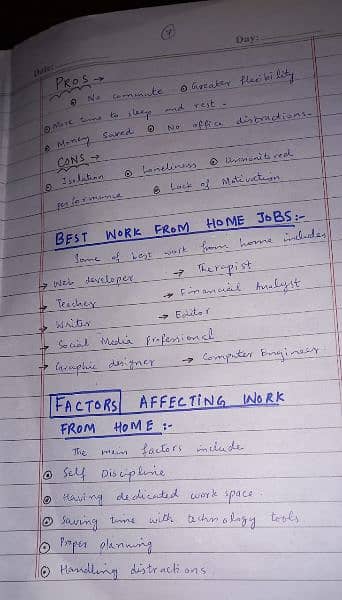 7
Date: Day:
PROS →
⊙ No commute ⊙ Greater flexibility
⊙ More time to sleep and rest.
⊙ Money saved ⊙ No office distractions.
CONS →
⊙ Isolation ⊙ Loneliness ⊙ Unmonitored
performance ⊙ Lack of Motivation
BEST WORK FROM HOME JOBS:-
Some of best work from home includes
→ Web developer → Therapist
→ Teacher → Financial Analyst
→ Writer → Editor
→ Social Media Professional
→ Graphic designer → Computer Engineer
FACTORS AFFECTING WORK
FROM HOME :-
The main factors include
⊙ Self Discipline
⊙ Having dedicated work space.
⊙ Saving time with technology tools
⊙ Proper planning
⊙ Handling distractions